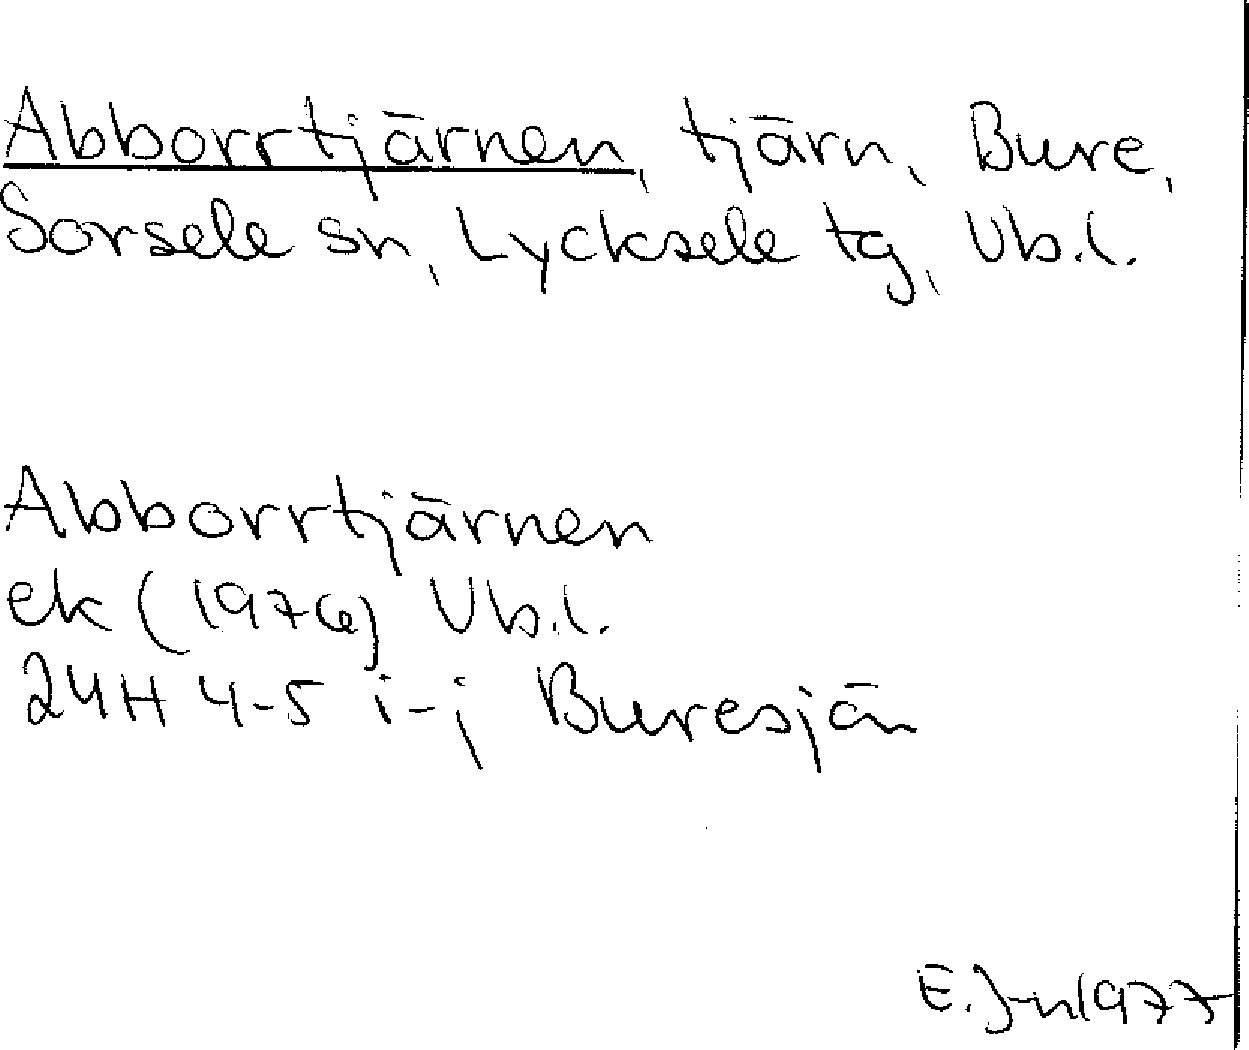 Abborrtjärnen, tjärn, Bure,
Sorsele sn, Lycksele tg, Vb.l.
Abborrtjärnen
ek (1976) Vb.l.
24H 4-5 i-j Buresjön
E. J-n 1977